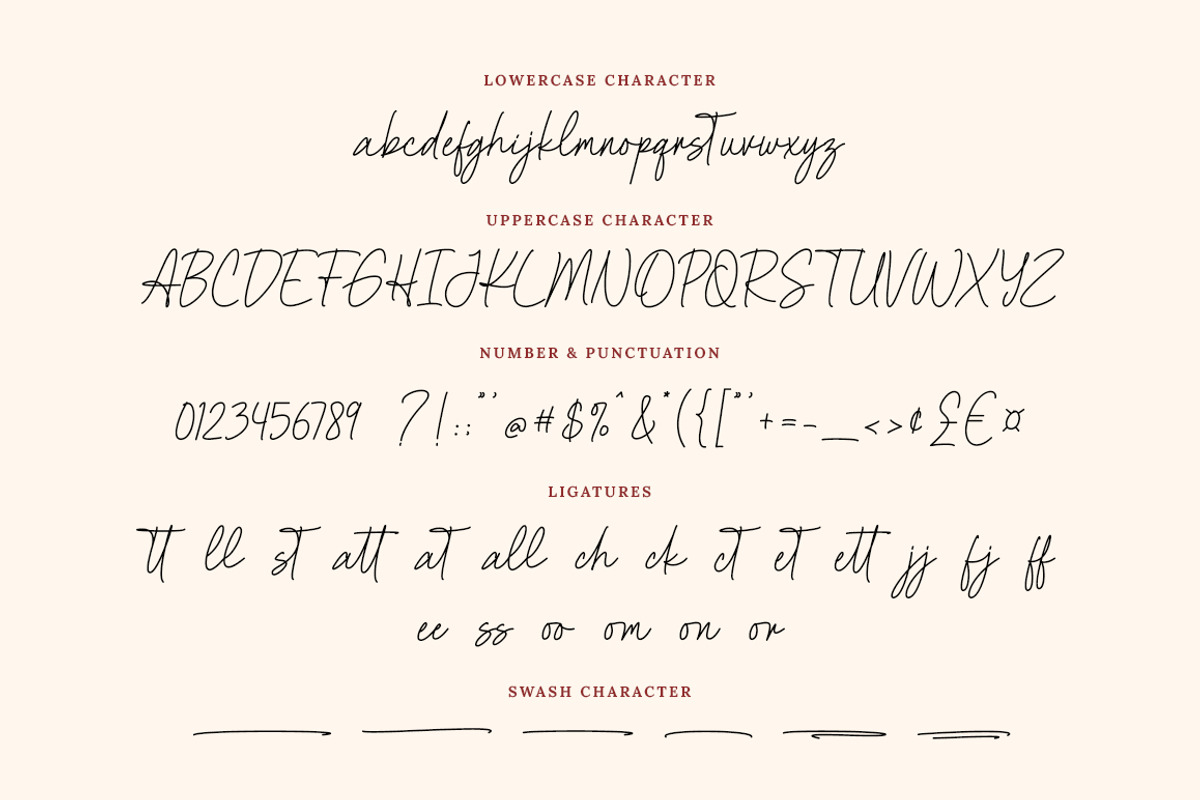 LOWERCASE CHARACTER
abcdefghijklmnopqrstuvwxyz
UPPERCASE CHARACTER
ABCDEFGHIJKLMNOPQRSTUVWXYZ
NUMBER & PUNCTUATION
0123456789 ?!:;"'@#$%^&*({["'+=-_<>¢£€¤
LIGATURES
tt ll st att at all ch ck ct et ett jj fj ff
ee ss oo om on or
SWASH CHARACTER